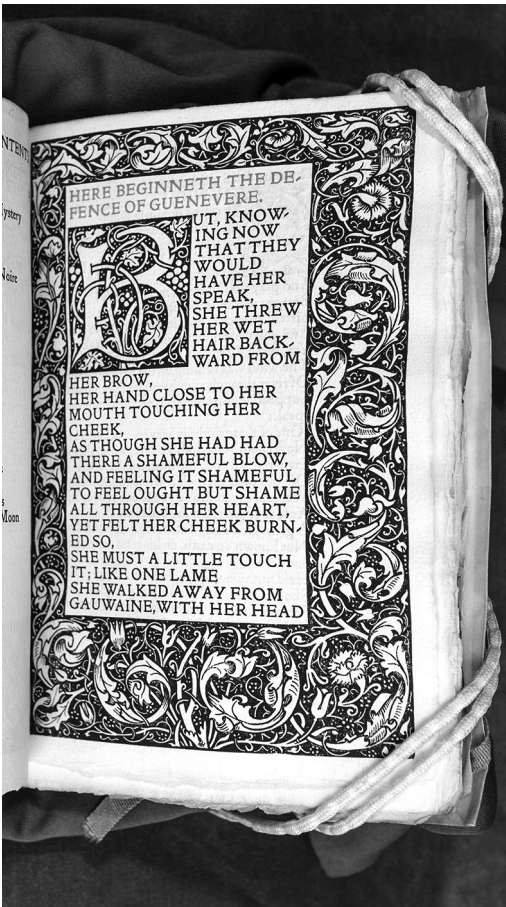 NTENTS
Mystery
Noire
s
s
Moon
HERE BEGINNETH THE DE-
FENCE OF GUENEVERE.
BUT, KNOW-
ING NOW
THAT THEY
WOULD
HAVE HER
SPEAK,
SHE THREW
HER WET
HAIR BACK-
WARD FROM
HER BROW,
HER HAND CLOSE TO HER
MOUTH TOUCHING HER
CHEEK,
AS THOUGH SHE HAD HAD
THERE A SHAMEFUL BLOW,
AND FEELING IT SHAMEFUL
TO FEEL OUGHT BUT SHAME
ALL THROUGH HER HEART,
YET FELT HER CHEEK BURN-
ED SO,
SHE MUST A LITTLE TOUCH
IT; LIKE ONE LAME
SHE WALKED AWAY FROM
GAUWAINE, WITH HER HEAD